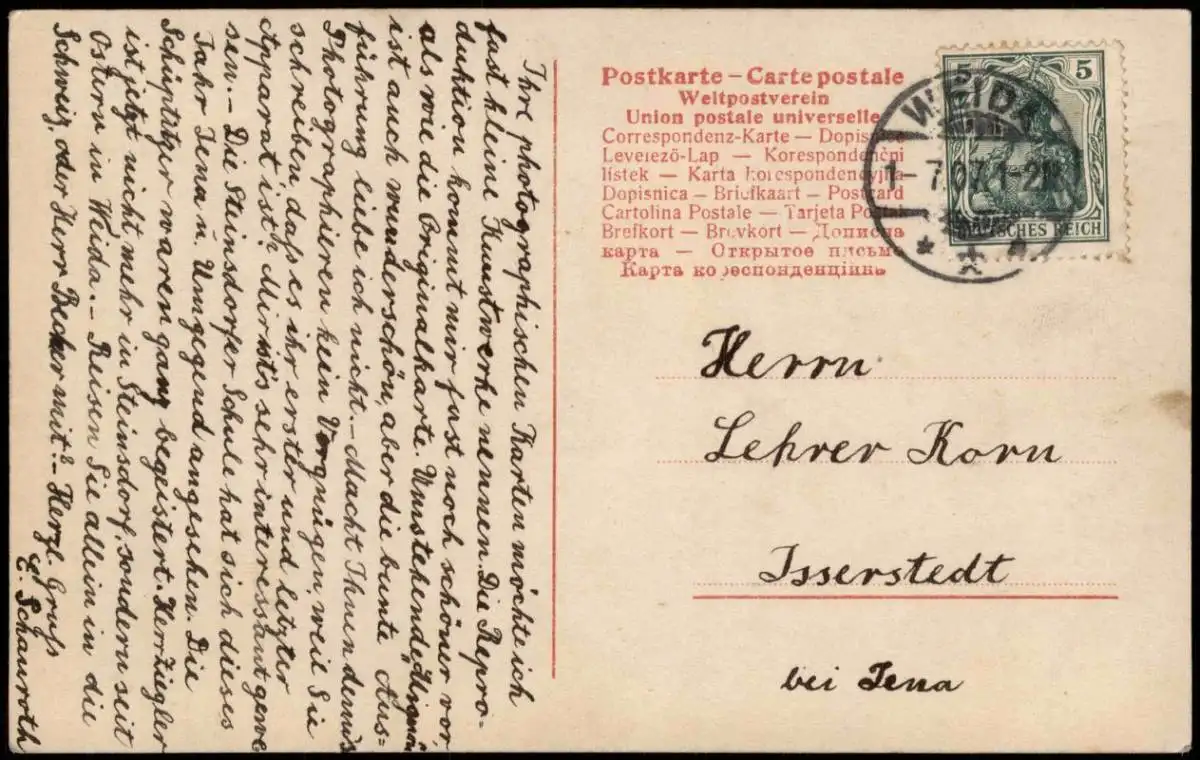 Postkarte – Carte postale
Weltpostverein
Union postale universelle
Correspondenz-Karte — Dopisnice
Levelező-Lap — Korespondenční
lístek — Karta korespondencyjna
Dopisnica — Briefkaart — Postcard
Cartolina Postale — Tarjeta Postal
Brefkort — Brevkort — Дописна
карта — Открытое письмо
Карта кореспонденцiйна
WEIDA
1-7.07.1-2N
5
5
DEUTSCHES REICH
Herrn
Lehrer Korn
Isserstedt
bei Jena
Ihre photographischen Karten möchte ich
fast kleine Kunstwerke nennen. Die Repro-
duktion kommt mir fast noch schöner vor
als wie die Originalkarte. Umstehende
ist auch wunderschön, aber die bunte Aus-
führung liebe ich nicht. – Macht Ihnen denn's
Photographieren kein Vergnügen, weil Sie
schreiben, dass es ihr erster und letzter
Apparat ist? Mir ist's sehr interessant gewe
sen. – Die Steinsdorfer Schule hat sich dieses
Jahr Jena u Umgegend angesehen. Die
Schüptitzer waren ganz begeistert. Herr Ziegler
ist jetzt nicht mehr in Steinsdorf, sondern seit
Ostern in Weida. – Reisen Sie allein in die
Schweiz, oder Herr Becker mit? – Herzl. Gruß
E. Schauroth